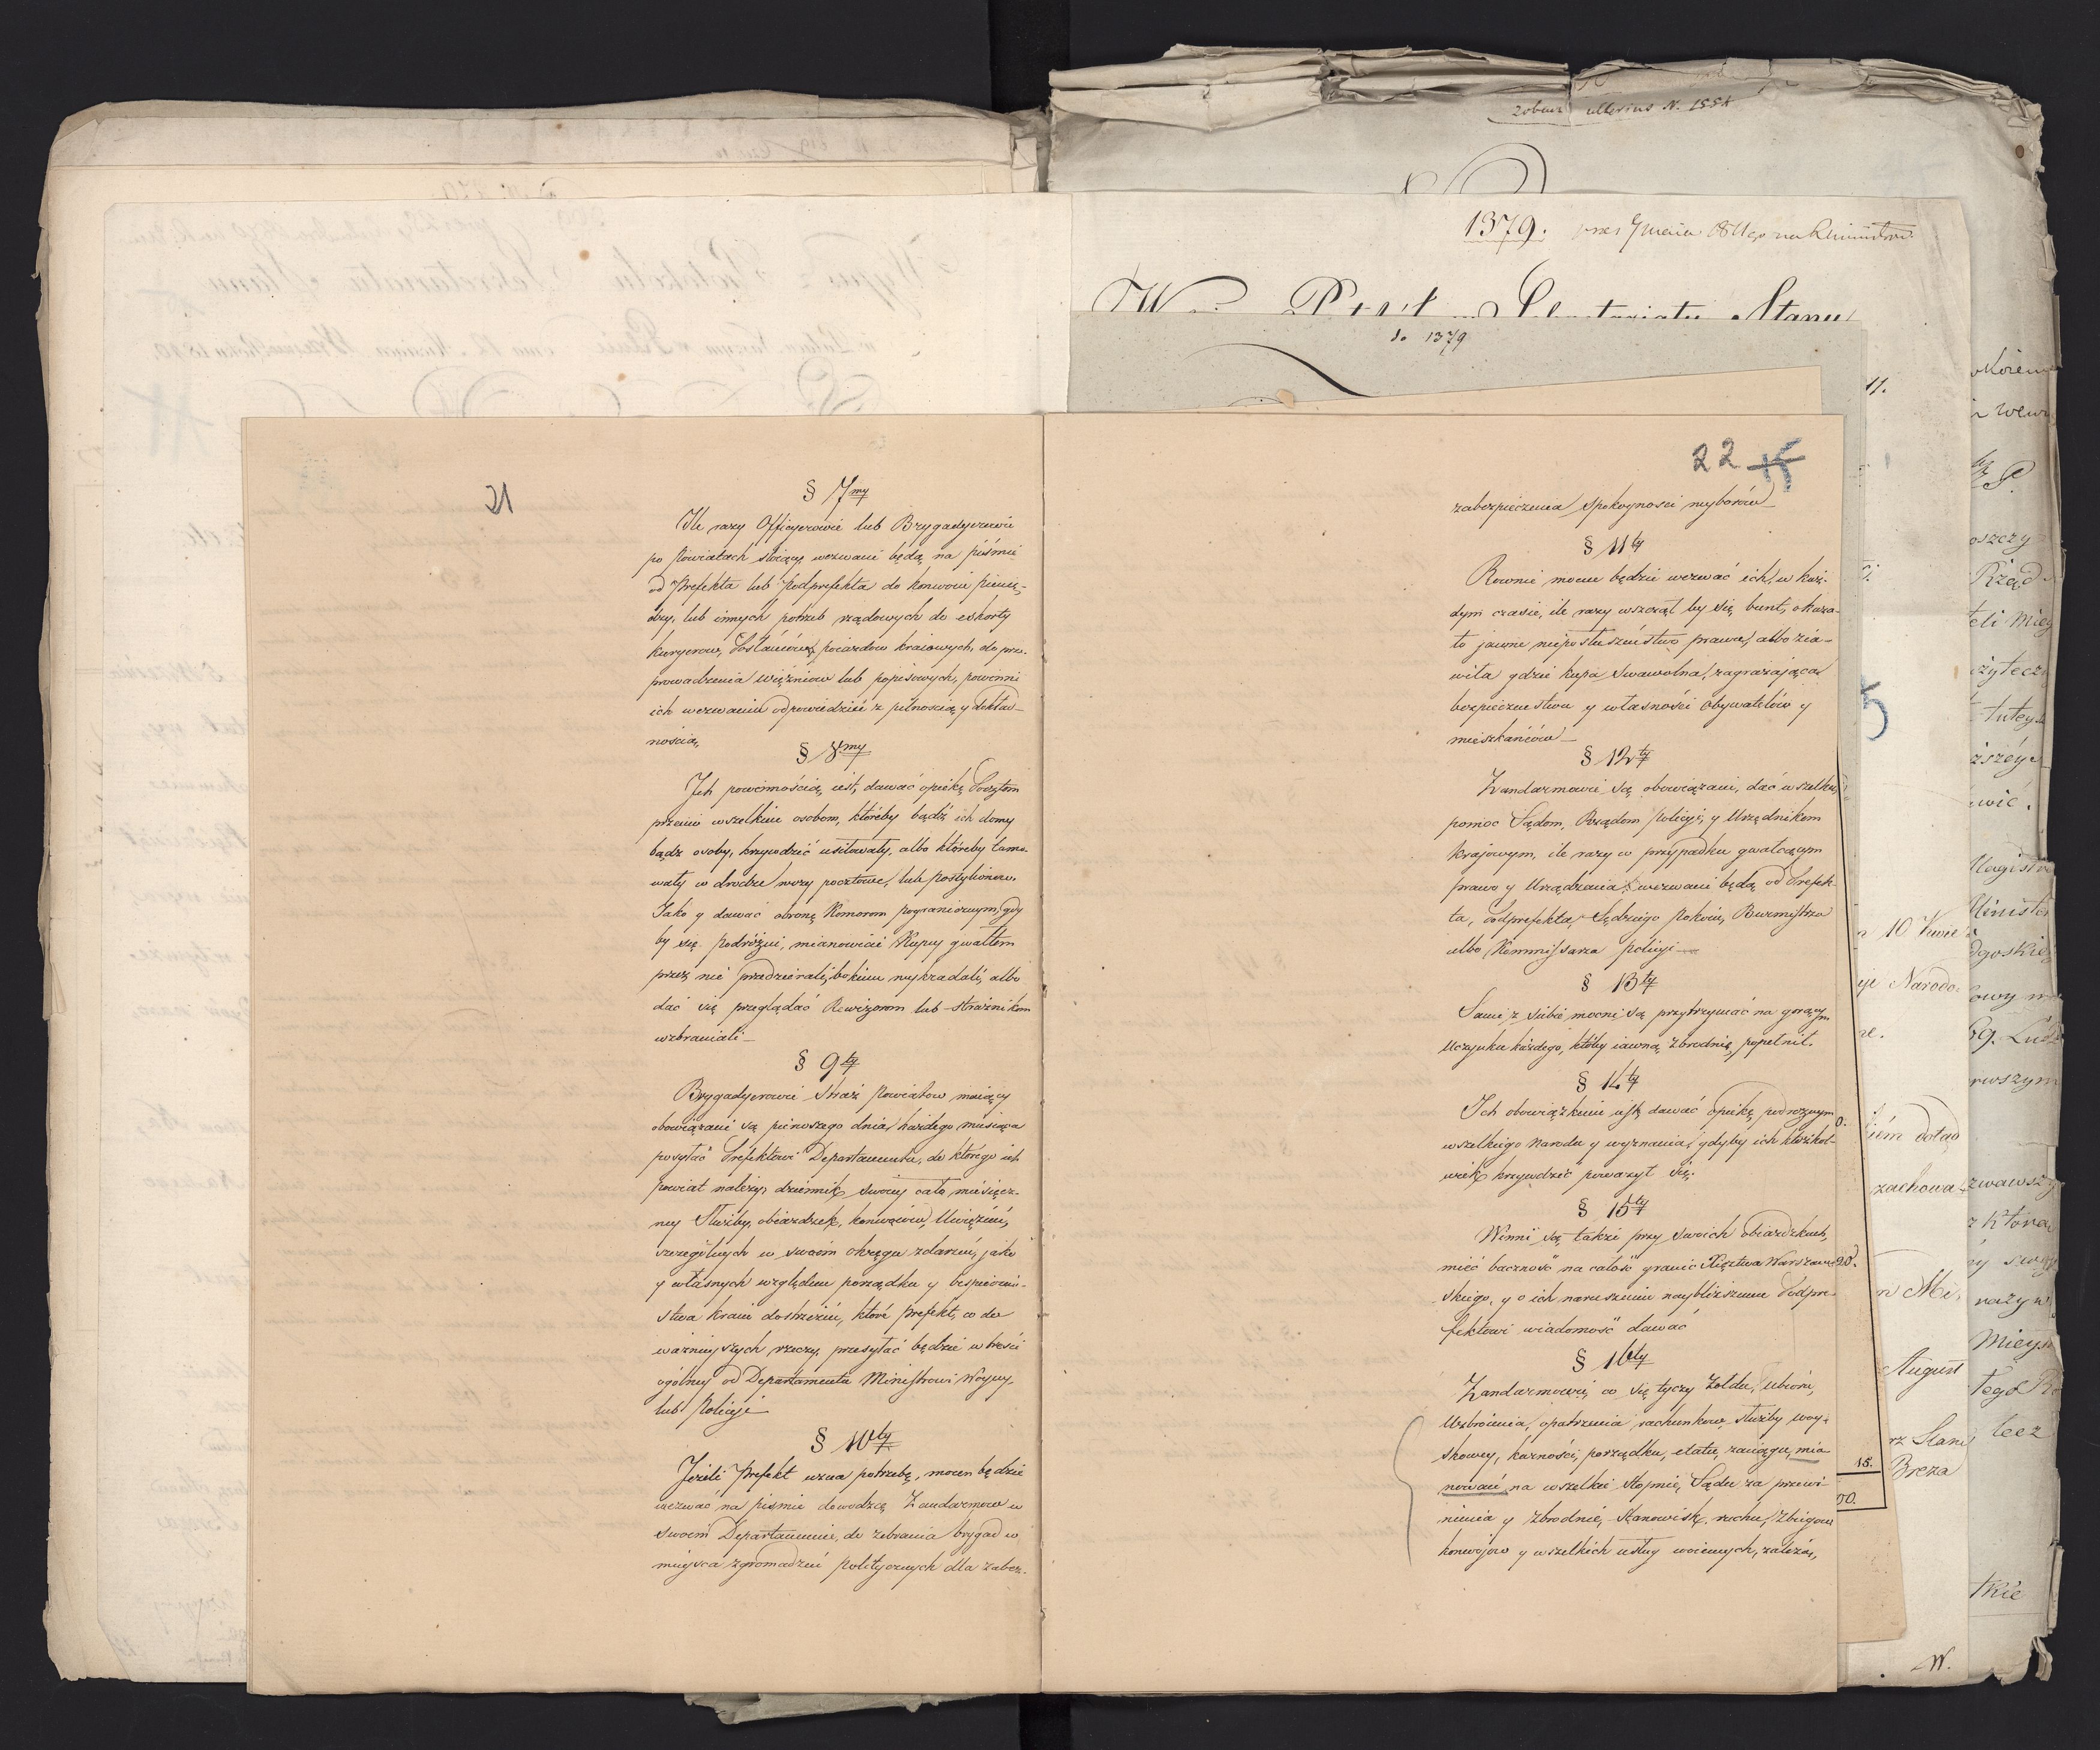 zobacz ulterius N. 1554
1379.
do 1379
21
§ 7my
Ile razy Officyerowie lub Brygadyerowie
po Powiatach stoiący wezwani będą na piśmie
od Prefekta lub Podprefekta do konwoiu pienię-
dzy, lub innych potrzeb rządowych do eskorty
kuryerow, Posłańców, poiazdow kraiowych, do prze-
prowadzenia więźniow lub popisowych, powinni
ich wezwaniu odpowiedzieć z pilnością y dokład-
nością,
§ 8my
Ich powinnością iest, dawać opiekę Pocztom
przeciw wszelkim osobom, któreby bądź ich domy
bądz osoby, krzywdzić usiłowały, albo któreby tamo-
wały w drodze wozy pocztowe, lub postylionow.
Jako y dawać obronę Komorom pogranicznym, gdy
by się podróżni, mianowicie Kupcy gwałtem
przez nie przedzierali, bokiem wykradali, albo
dać się przeglądać Rewizorom lub strażnikom
wzbraniali_
§ 9ty
Brygadyerowie straż Powiatow maiący
obowiązani są pierwszego dnia każdego miesiąca
posyłać Prefektowi Departamentu, do którego ich
powiat należy, dziennik swoiey cało miesięcz-
ney Służby, obiazdzek, konwoiów, Uwięzień,
szczególnych w swoim okręgu zdarzeń, jako
y własnych względem porządku y bespieczeń-
stwa kraiu dostrzeżeń, które Prefekt, co do
ważnieyszych rzeczy, przesyłać będzie w treści
ogólney od Departamentu Ministrowi Woyny
lub Policyi
§ 10ty
Jeżeli Prefekt uzna potrzebę, mocen będzie
wezwać na piśmie dowodzcę Żandarmow w
swoim Departamencie, do zebrania brygad w
mieysca zgromadzeń politycznych dla zabez-
22 15
zabezpieczenia spokoyności wyborów_
§ 11ty
Rownie mocen będzie wezwać ich, w każ-
dym czasie, ile razy wszczął by się bunt, okaza-
ło jawne nieposłuszeństwo prawu, albo zia-
wiła gdzie kupa swawolna, zagrażająca
bezpieczeństwu y własności Obywatelów y
mieszkańców_
§ 12ty
Żandarmowie są obowiązani, dać wszelką
pomoc Sądom, Rządom Policyi, y Urzędnikom
krajowym, ile razy w przypadku gwałcącym
prawo y Urządzenia wezwani będą od Prefek-
ta, Podprefekta, Sędziego Pokoiu, Burmistrza
albo Kommissarza policyi_
§ 13ty
Sami z siebie mocni są przytrzymać na gorącym
Uczynku każdego, któby iawną zbrodnię popełnił.
§ 14ty
Ich obowiązkiem iest, dawać Opiekę podroznym
wszelkiego narodu y wyznania, gdyby ich ktożkol-
wiek krzywdzić poważył się.
§ 15ty
Winni są także przy swoich obiazdzkach,
mieć baczność na całość granic Xięztwa Warszaw-
skiego, y o ich naruszeniu naybliższemu Podpre-
fektowi wiadomość dawać
§ 16ty
Żandarmowie, co się tyczy Żołdu, ubioru,
Uzbroienia, opatrzenia rachunkow, służby woy-
skowey, karności, porządku, etatu, zaciągu, mia-
nowań na wszelkie stopnie, Sądu za przewi-
nienia y zbrodnie, Stanowisk, ruchu, Zbiegow
konwojow y wszelkich usług woiennych, zależą,
11.
10 Kwie
Narodo
dotąd
zachowa
August
Breza
15.
50.
20.
Rząd
Narodo
Mieys
tego
lecz
tkie
W.